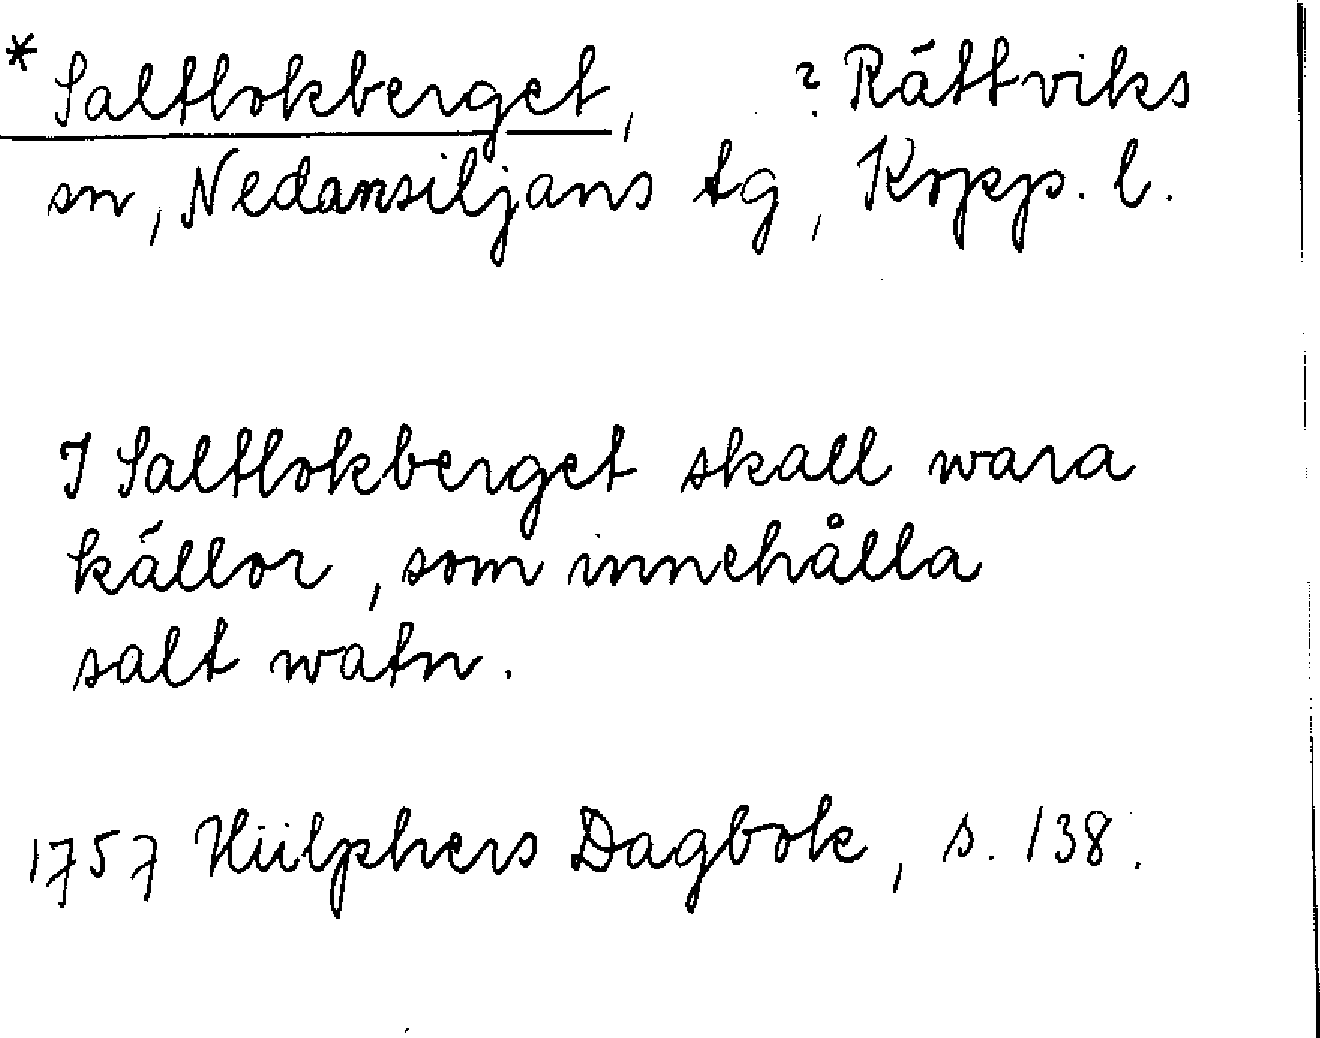 * Saltlokberget, ? Rättviks
sn, Nedansiljans tg, Kopp. l.
I Saltlokberget skall wara
källor, som innehålla
salt watn.
1757 Hülphers Dagbok, s. 138.